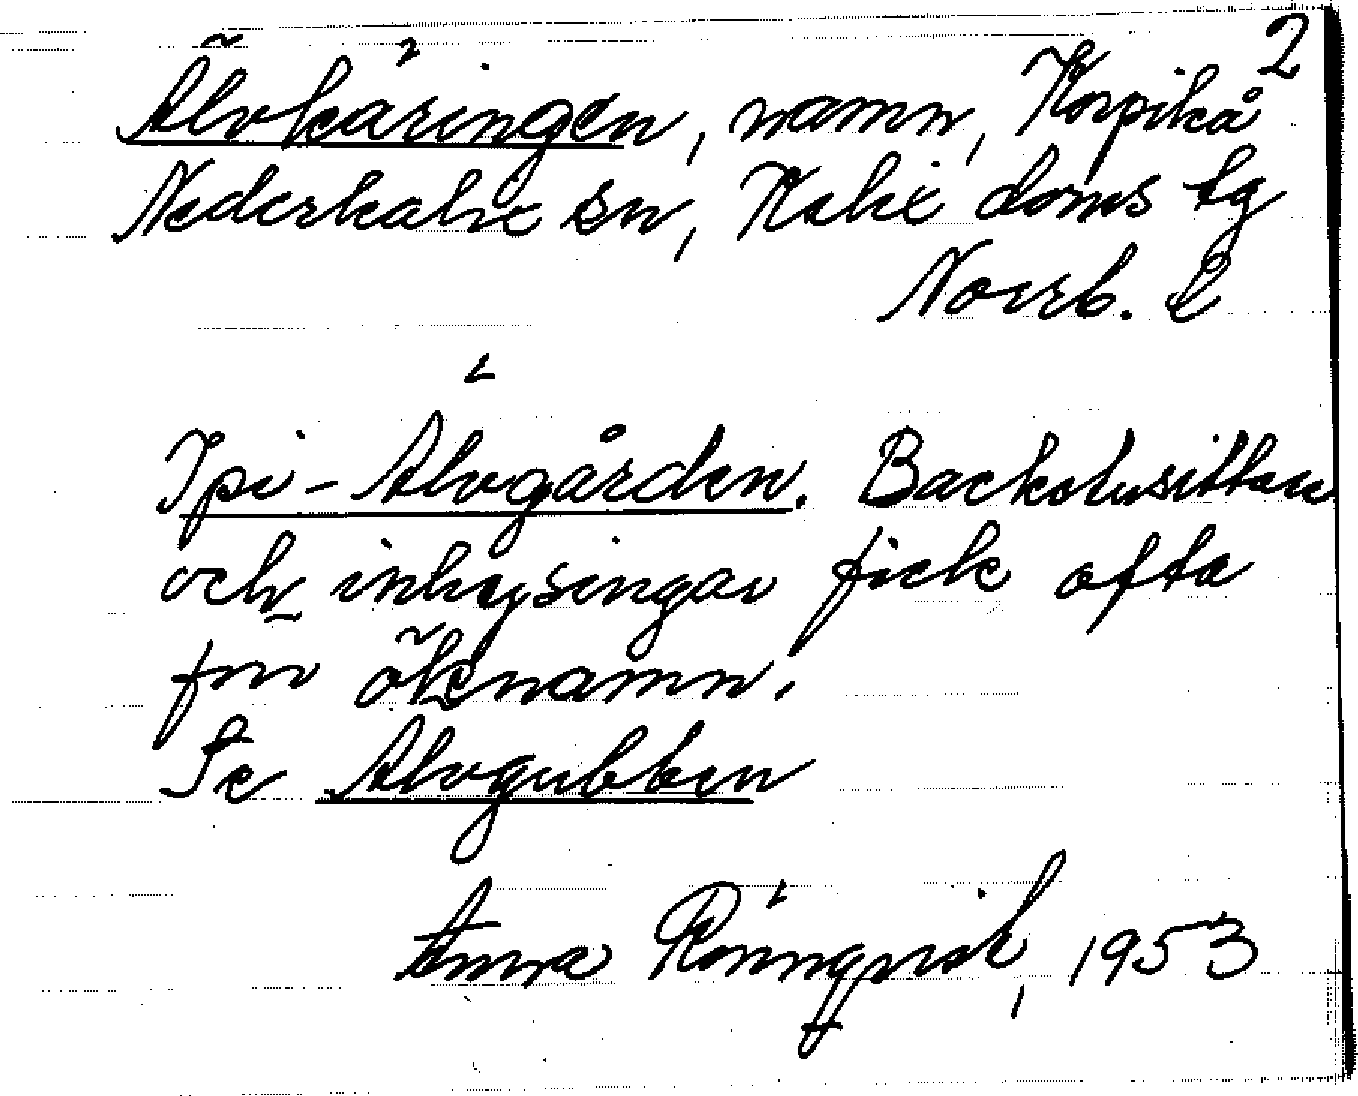 2
Älvkäringen, namn, Korpikå
Nederkalix sn, Kalix doms tg
Norrb. l
I pi - Älvgården. Backstusittare
och inhysingar fick ofta
förr öknamn.
Se Älvgubben
Anna Rönnqvist, 1953